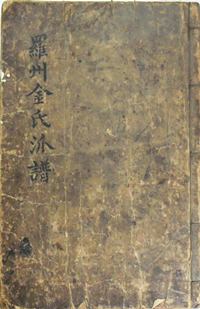 羅州金氏派譜